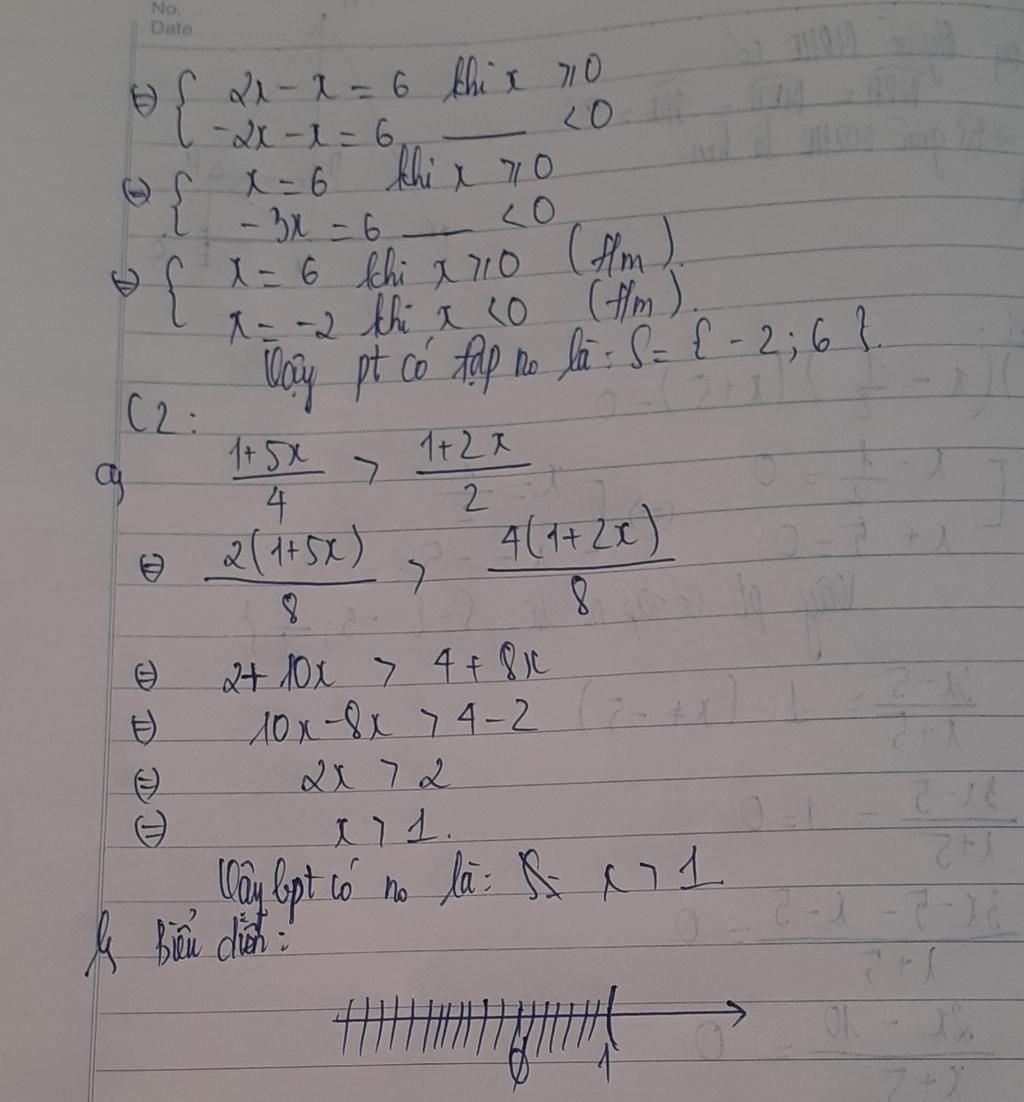 No.
Date
⇔ { 2x - x = 6 khi x ≥ 0
-2x - x = 6 ___ < 0
⇔ { x = 6 khi x ≥ 0
-3x = 6 ___ < 0
⇔ { x = 6 khi x ≥ 0 (t/m).
x = -2 khi x < 0 (t/m).
Vậy pt có tập no là: S = { -2; 6 }.
C2:
a, (1+5x)/4 > (1+2x)/2
⇔ 2(1+5x)/8 > 4(1+2x)/8
⇔ 2 + 10x > 4 + 8x
⇔ 10x - 8x > 4 - 2
⇔ 2x > 2
⇔ x > 1.
Vậy bpt có no là: x > 1
Biểu diễn:
0 1